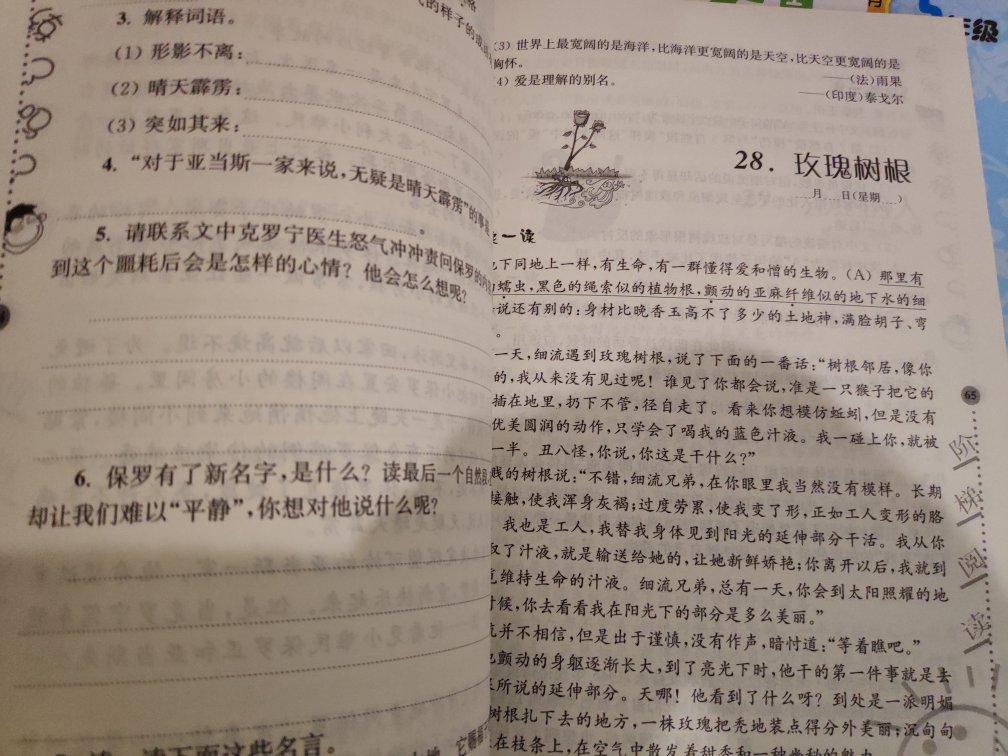 3. 解释词语。
(1) 形影不离：
(2) 晴天霹雳：
(3) 突如其来：
4. “对于亚当斯一家来说，无疑是晴天霹雳”的事是
。
5. 请联系文中克罗宁医生怒气冲冲责问保罗的
到这个噩耗后会是怎样的心情？他会怎么想呢？
6. 保罗有了新名字，是什么？读最后一个自然段，
却让我们难以“平静”，你想对他说什么呢？
读下面这些名言。
年级
(3) 世界上最宽阔的是海洋，比海洋更宽阔的是天空，比天空更宽阔的是
胸怀。
——(法)雨果
4) 爱是理解的别名。
——(印度)泰戈尔
28. 玫瑰树根
月 日(星期 )
一读
下同地上一样，有生命，有一群懂得爱和憎的生物。(A) 那里有
蠕虫，黑色的绳索似的植物根，颤动的亚麻纤维似的地下水的细
说还有别的：身材比晚香玉高不了多少的土地神，满脸胡子、弯
。
一天，细流遇到玫瑰树根，说了下面的一番话：“树根邻居，像你
的，我从来没有见过呢！谁见了你都会说，准是一只猴子把它的
插在地里，扔下不管，径自走了。看来你想模仿蚯蚓，但是没有
优美圆润的动作，只学会了喝我的蓝色汁液。我一碰上你，就被
一半。丑八怪，你说，你这是干什么？”
贱的树根说：“不错，细流兄弟，在你眼里我当然没有模样。长期
接触，使我浑身灰褐；过度劳累，使我变了形，正如工人变形的胳
我也是工人，我替我身体见到阳光的延伸部分干活。我从你
取了汁液，就是输送给她的，让她新鲜娇艳；你离开以后，我就到
维持生命的汁液。细流兄弟，总有一天，你会到太阳照耀的地
时候，你去看看我在阳光下的部分是多么美丽。”
并不相信，但是出于谨慎，没有作声，暗忖道：“等着瞧吧。”
颤动的身躯逐渐长大，到了亮光下时，他干的第一件事就是去
所说的延伸部分。天哪！他看到了什么呀？到处是一派明媚
树根扎下去的地方，一株玫瑰把秃地装点得分外美丽；沉甸甸
在枝条上，在空气中散发着甜香和一种
65
阶
梯
阅
读